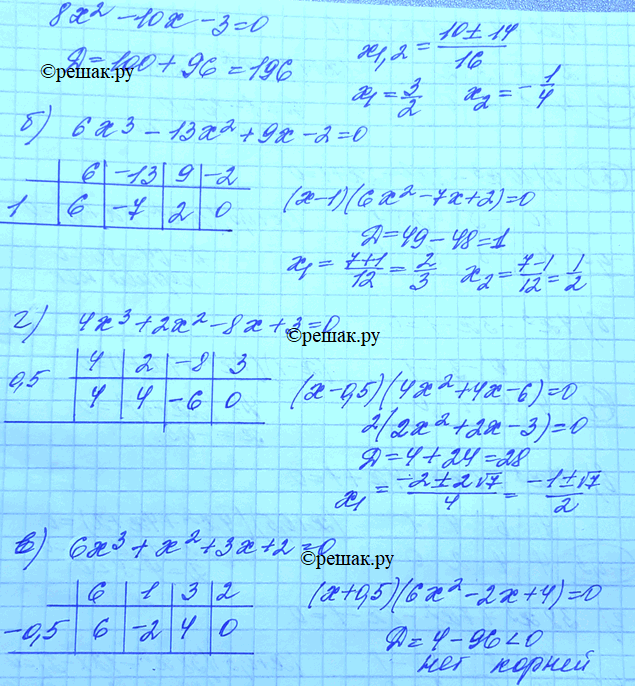 8x² - 10x - 3 = 0
Д = 100 + 96 = 196
x₁,₂ = (10 ± 14)/16
©решак.ру
x₁ = 3/2 x₂ = -1/4
б) 6x³ - 13x² + 9x - 2 = 0
6 | -13 | 9 | -2
1 | 6 | -7 | 2 | 0
(x-1)(6x² - 7x + 2) = 0
Д = 49 - 48 = 1
x₁ = (7+1)/12 = 2/3 x₂ = (7-1)/12 = 1/2
г) 4x³ + 2x² - 8x + 3 = 0
©решак.ру
4 | 2 | -8 | 3
0,5 | 4 | 4 | -6 | 0
(x - 0,5)(4x² + 4x - 6) = 0
2(2x² + 2x - 3) = 0
Д = 4 + 24 = 28
x₁ = (-2 ± 2√7)/4 = (-1 ± √7)/2
в) 6x³ + x² + 3x + 2 = 0
©решак.ру
6 | 1 | 3 | 2
-0,5 | 6 | -2 | 4 | 0
(x + 0,5)(6x² - 2x + 4) = 0
Д = 4 - 96 < 0
нет корней